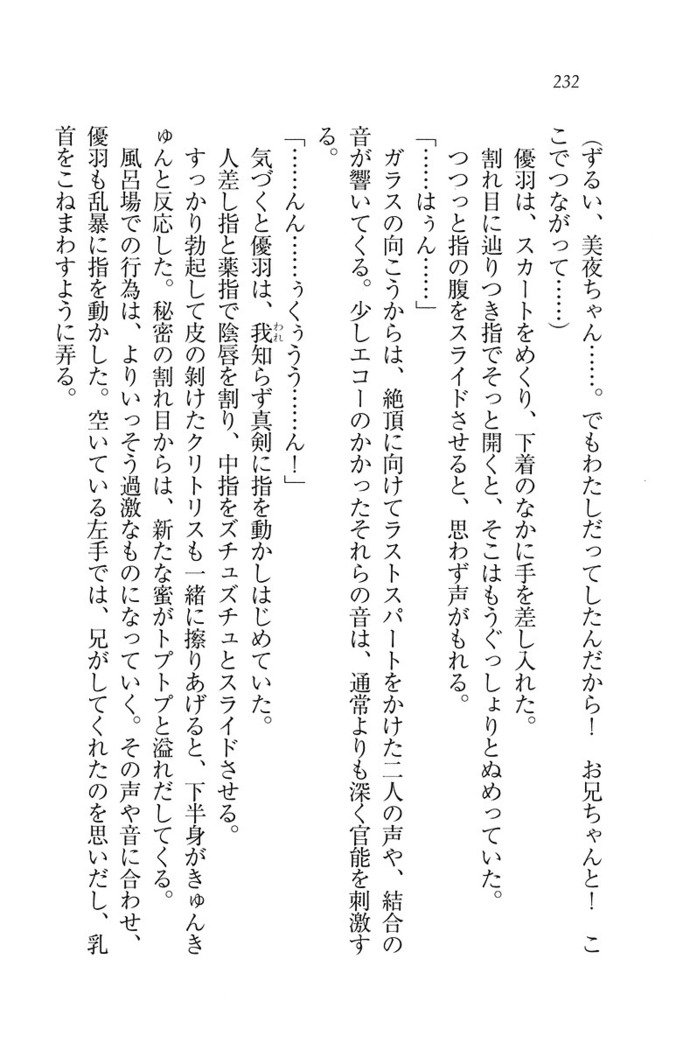 232
(ずるい、美夜ちゃん……。でもわたしだってしたんだから！　お兄ちゃんと！　こ
こでつながって……)
優羽は、スカートをめくり、下着のなかに手を差し入れた。
割れ目に辿りつき指でそっと開くと、そこはもうぐっしょりとぬめっていた。
つつっと指の腹をスライドさせると、思わず声がもれる。
「……はぅん……」
ガラスの向こうからは、絶頂に向けてラストスパートをかけた二人の声や、結合の
音が響いてくる。少しエコーのかかったそれらの音は、通常よりも深く官能を刺激す
る。
「……んん……ぅくぅうう……ん！」
気づくと優羽は、我知らず真剣に指を動かしはじめていた。
人差し指と薬指で陰唇を割り、中指をズチュズチュとスライドさせる。
すっかり勃起して皮の剥けたクリトリスも一緒に擦りあげると、下半身がきゅんき
ゅんと反応した。秘密の割れ目からは、新たな蜜がトプトプと溢れだしてくる。
風呂場での行為は、よりいっそう過激なものになっていく。その声や音に合わせ、
優羽も乱暴に指を動かした。空いている左手では、兄がしてくれたのを思いだし、乳
首をこねまわすように弄る。